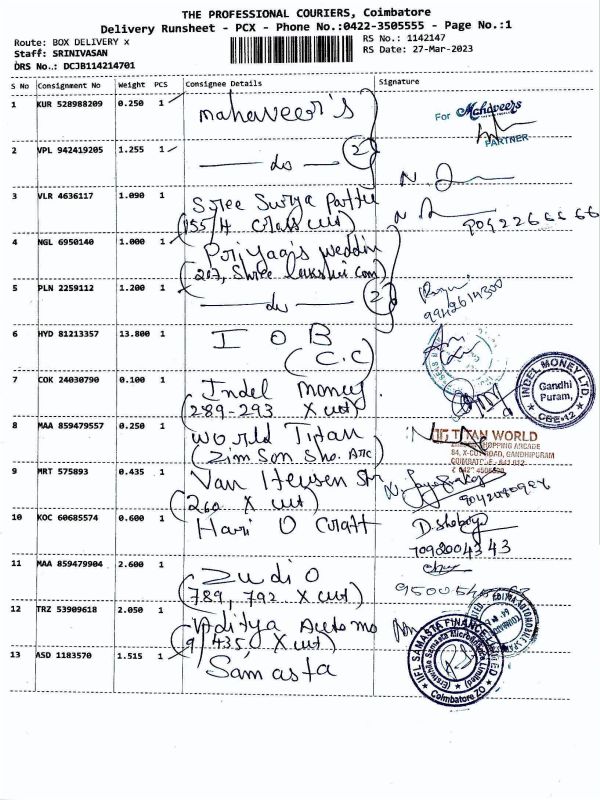 THE PROFESSIONAL COURIERS, Coimbatore
Delivery Runsheet - PCX - Phone No.:0422-3505555 - Page No.:1
Route: BOX DELIVERY x
RS No.: 1142147
Staff: SRINIVASAN
RS Date: 27-Mar-2023
DRS No.: DCJB114214701
S No Consignment No Weight PCS Consignee Details Signature
1 KUR 528988209 0.250 1 mahaveer's
For Mahaveers
PARTNER
2 VPL 942419205 1.255 1 do 2
3 VLR 4636117 1.090 1 Sree Surya
(55/4 Cross cut)
4 NGL 6950140 1.000 1 Priyaa's weddin
(207, Shree
5 PLN 2259112 1.200 1 do 2
6 HYD 81213357 13.800 1 I O B
(C.C)
7 COK 24030790 0.100 1 Indel money
(289-293 X cut)
INDEL MONEY LTD.
Gandhi
Puram,
CBE-12
8 MAA 859479557 0.250 1 World Titan
TITAN WORLD
SHOPPING ARCADE
84, X-CUT ROAD, GANDHIPURAM
9 MRT 575893 0.435 1 Van Heusen
(260 X cut)
10 KOC 60685574 0.600 1 Hari O Craft
7098004343
11 MAA 859479904 2.600 1 Zudio
(789, 792 X cut)
12 TRZ 53909618 2.050 1 Aditya Automo
X cut)
13 ASD 1183570 1.515 1 Samasta
IIFL SAMASTA FINANCE LIMITED
(Erstwhile Samasta Microfinance Limited)
Coimbatore ZO